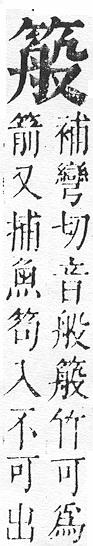 籏
補彎切音般籏竹可為
箭又捕魚笱入不可出